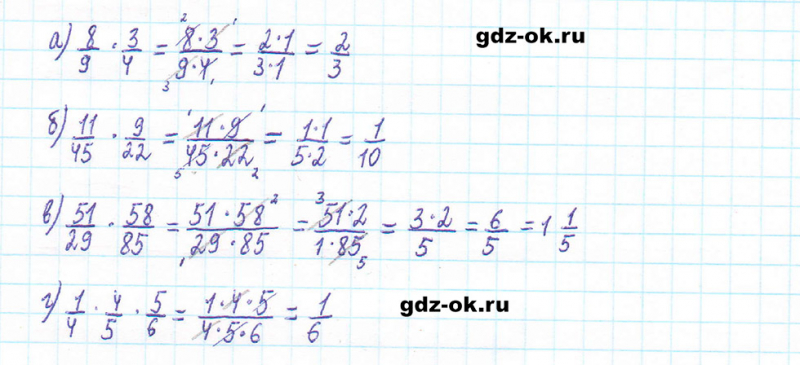 gdz-ok.ru
а) 8/9 · 3/4 = 8·3/9·4 = 2·1/3·1 = 2/3
б) 11/45 · 9/22 = 11·9/45·22 = 1·1/5·2 = 1/10
в) 51/29 · 58/85 = 51·58/29·85 = 51·2/1·85 = 3·2/5 = 6/5 = 1 1/5
г) 1/4 · 4/5 · 5/6 = 1·4·5/4·5·6 = 1/6
gdz-ok.ru